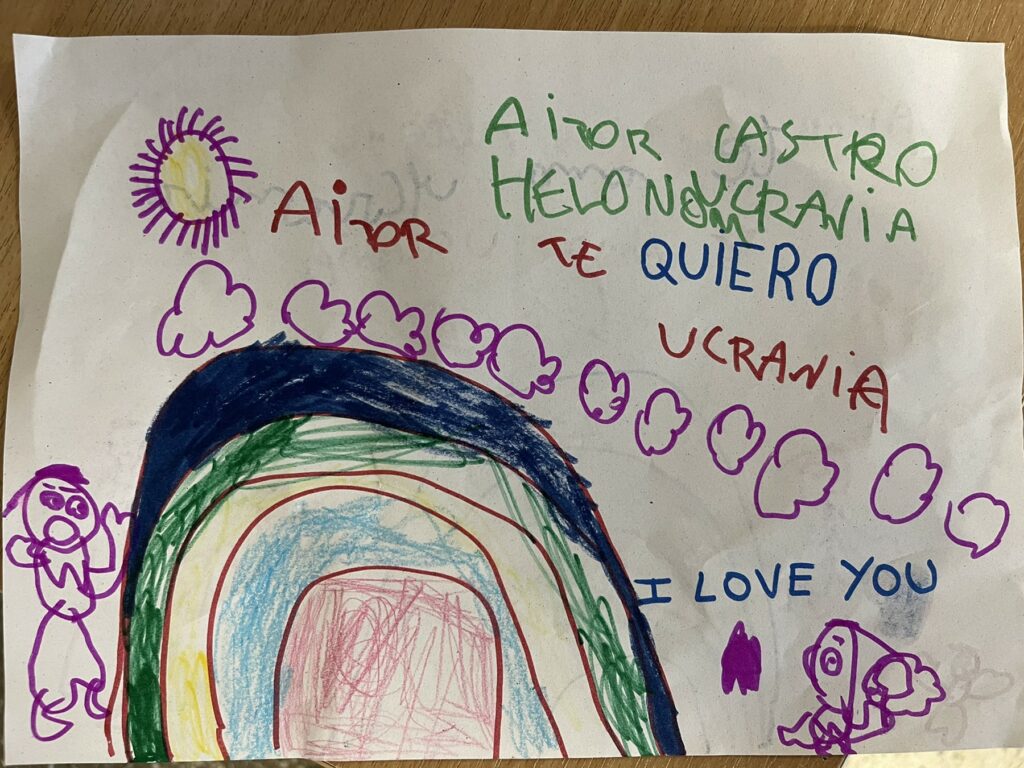 AiTOR CASTRO
UCRANiA
AiTOR TE QUiERO
UCRANiA
I LOVE YOU